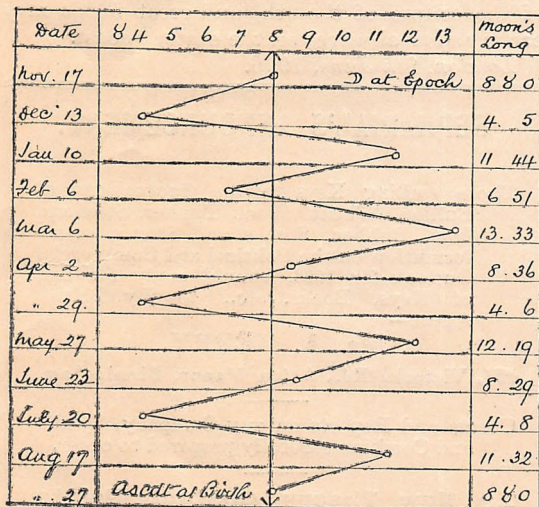 Date ♉ 4 5 6 7 8 9 10 11 12 13 Moon's Long
Nov. 17 ☽ at Epoch 8 ♉ 0
Dec 13 4. 5
Jan 10 11 44
Feb 6 6 51
Mar 6 13. 33
Apr 2 8. 36
" 29. 4. 6
May 27 12. 19
June 23 8. 29
July 20 4. 8
Aug 17 11. 32
". 27 Ascdt at Birth 8 ♉ 0